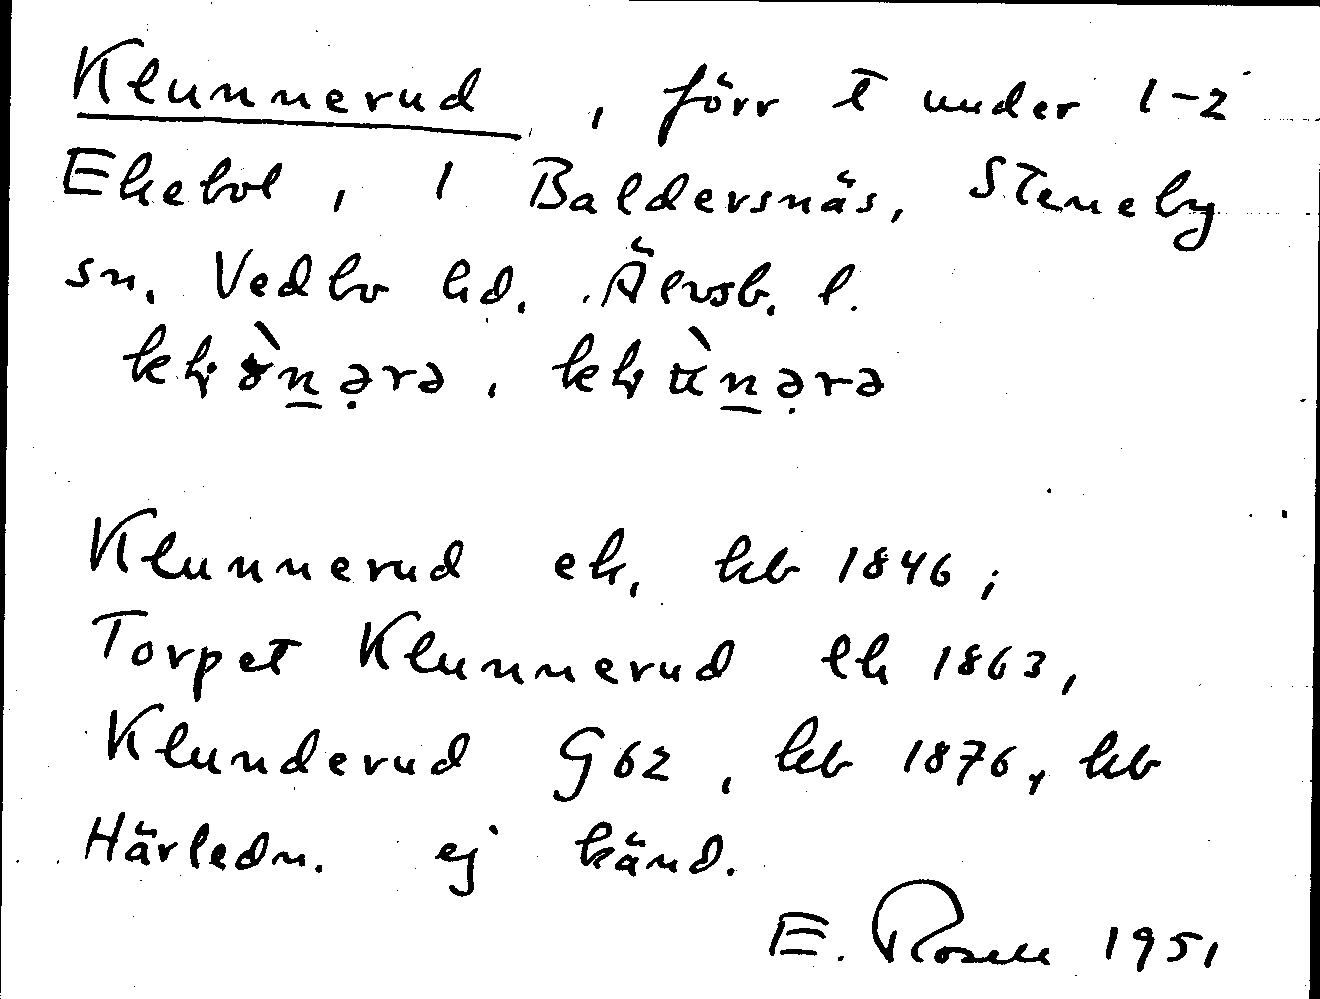 Klunnerud, förr t under 1-2
Ekebol, 1 Baldersnäs, Steneby
sn. Vedbo hd. Älvsb. l.
Klunnerud ek. kb 1846;
Torpet Klunnerud lk 1863,
Klunderud G62, kb 1876, kb
Härledn. ej känd.
E. Rosell 1951